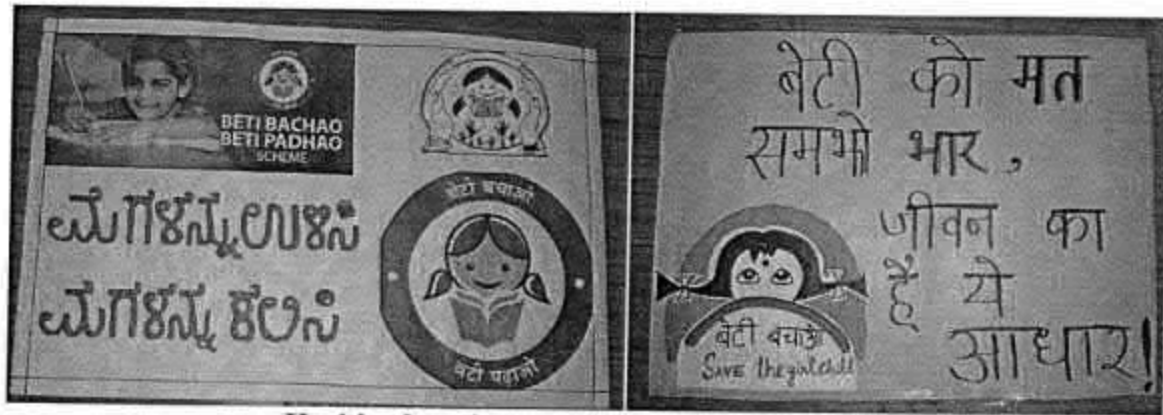 BETI BACHAO
BETI PADHAO
SCHEME
ಮಗಳನ್ನು ಉಳಿಸಿ
ಮಗಳನ್ನು ಕಲಿಸಿ
बेटी बचाओ
बेटी पढाओ
बेटी को मत
समझो भार,
जीवन का
है ये
आधार!
बेटी बचाओ
SAVE the girl child